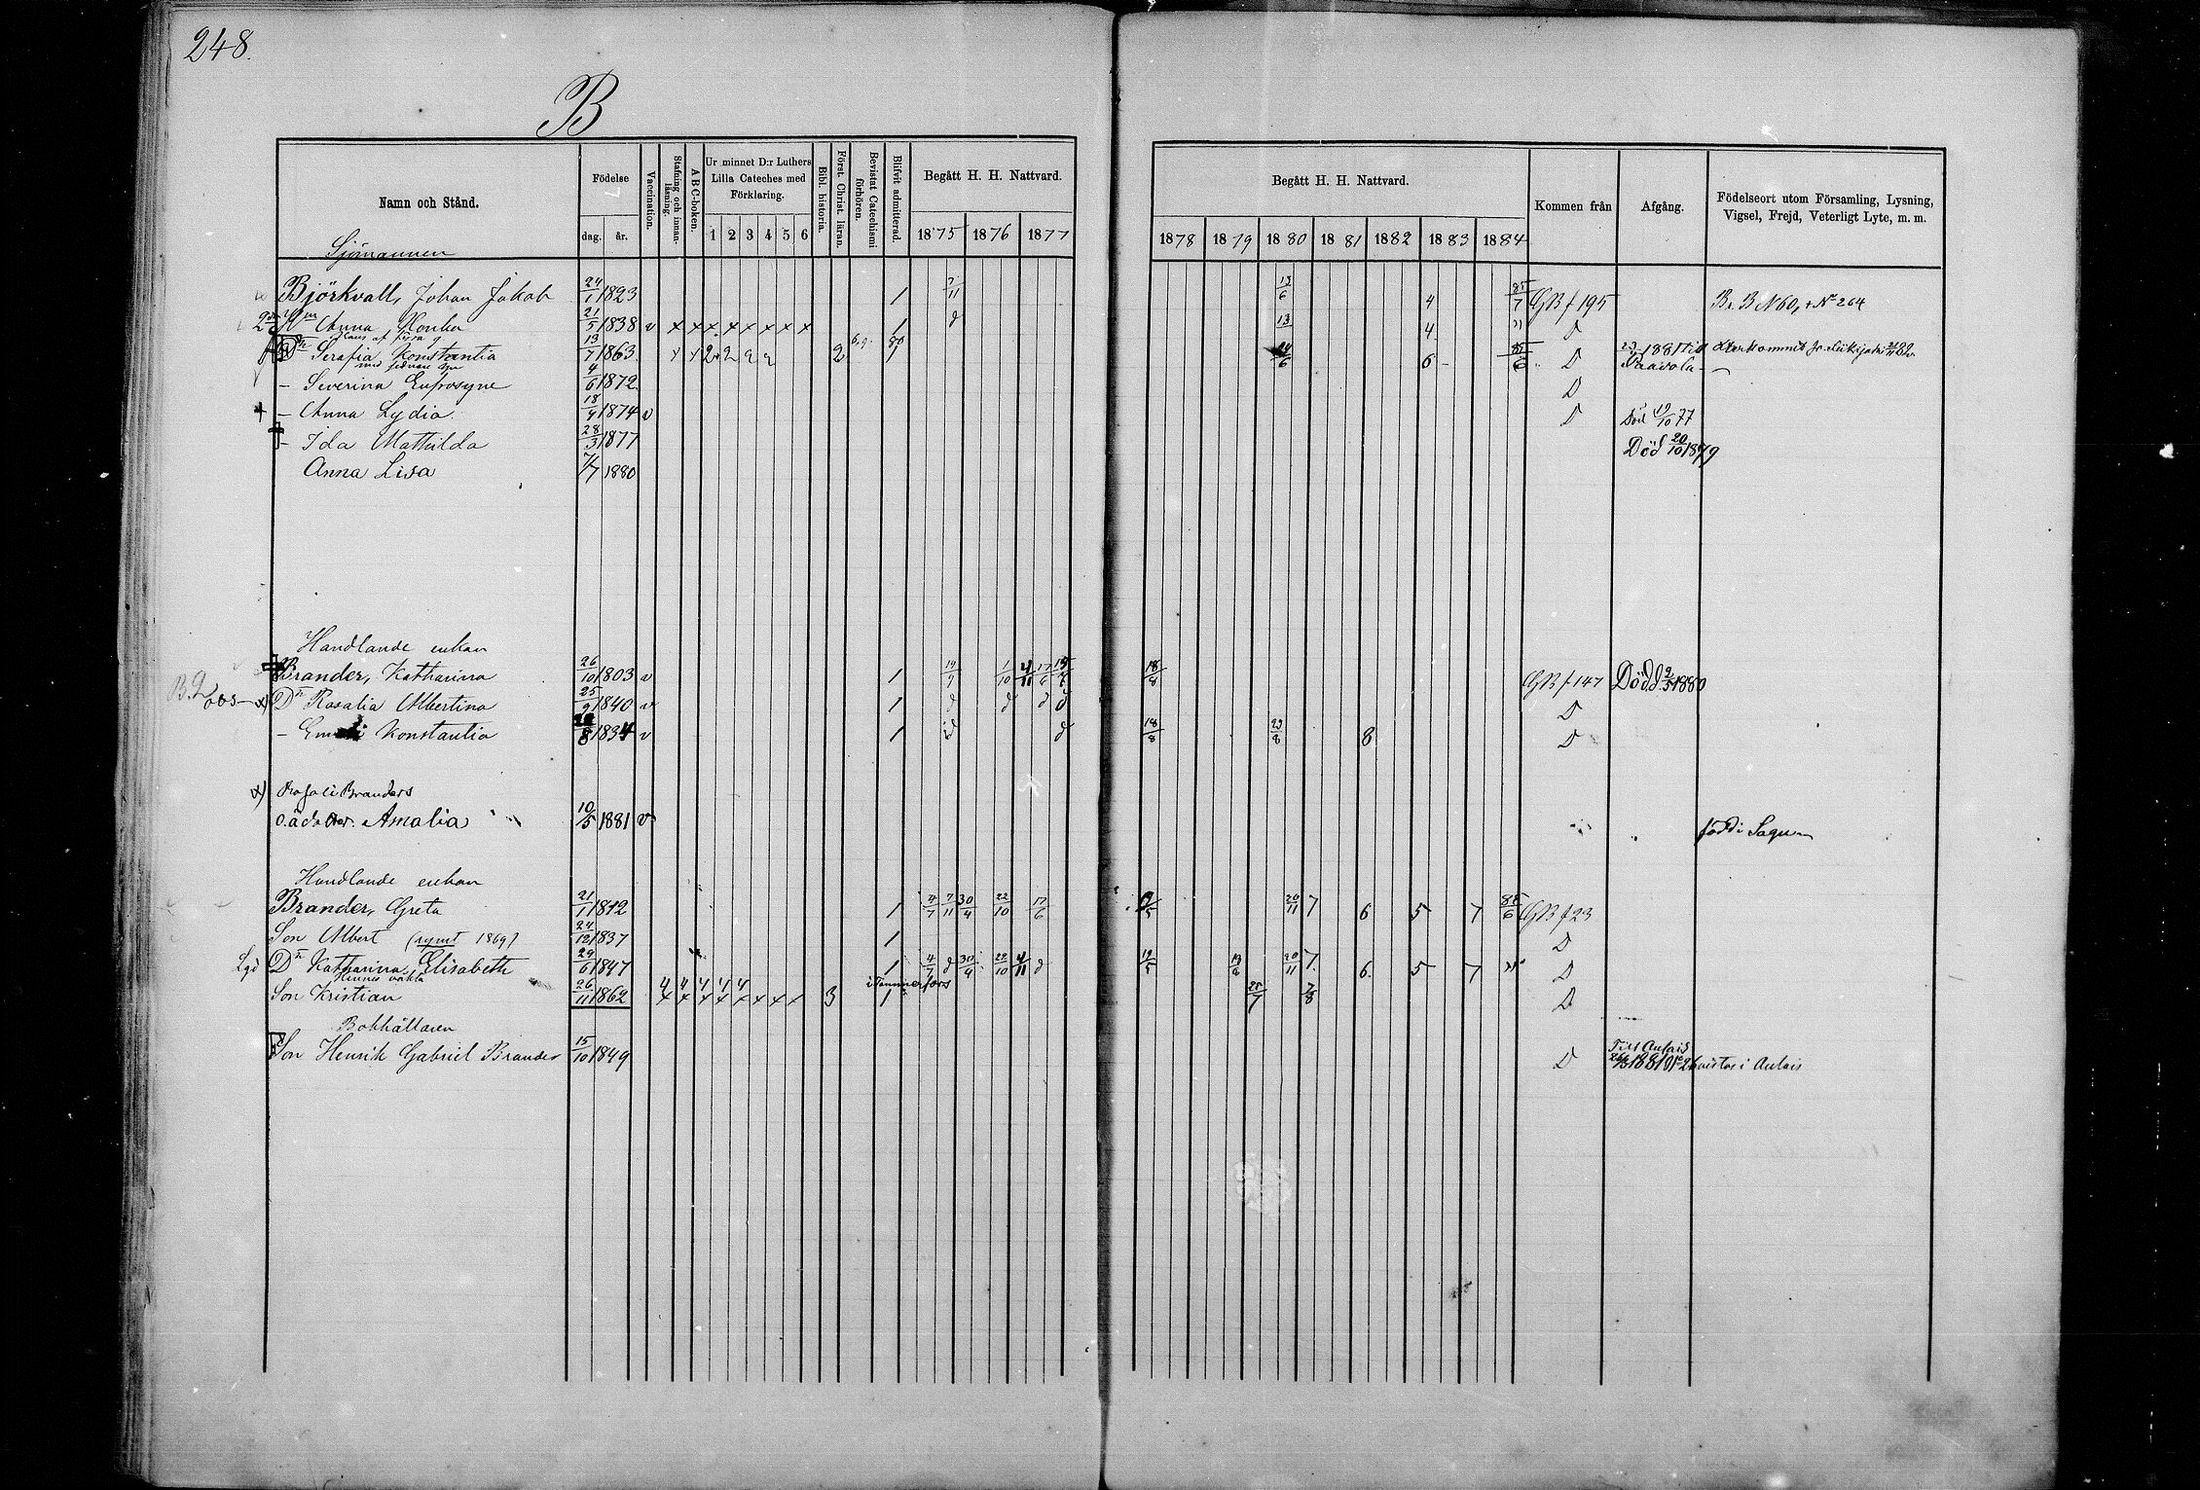 248.
B
Namn och Stånd.
Födelse
dag. år.
Vaccination.
Stafning och innanläsning.
A B C-boken.
Ur minnet D:r Luthers Lilla Cateches med Förklaring.
1 2 3 4 5 6
Bibl. historia.
Först. Christ. läran.
Bevistat Catechismi förhören.
Blifvit admitterad.
Begått H. H. Nattvard.
1875 1876 1877
Begått H. H. Nattvard.
1878 1879 1880 1881 1882 1883 1884
Kommen från
Afgång.
Födelseort utom Församling, Lysning, Vigsel, Frejd, Veterligt Lyte, m. m.
Sjömannen
Björkvall, Johan Jakob 24/1 1823 1 7/11 13/6 4 85/7 GB f 195 B. B N 60, + No 264
Anna 21/5 1838 v x x x x x x x x 1 d 13 4 " D
Serafia Konstantia 13/7 1863 2 2 2 1 6 85/6 D 1881 till Paavola
- Severina Eufrosyne 4/6 1872 D
+ - Anna Lydia 18/9 1874 v D Död 19/10 77
- Ida Mathilda 28/3 1877 Död 20/10 1879
Anna Lisa 7/7 1880
Handlande enkan
Brander, Katharina 26/10 1803 v 1 19/7 1/10 4/11 17/6 18/8 GB f 147 Död 2/5 1880
x) Dr Rosalia Albertina 25/9 1840 v 1 d d d d D
- Konstantia 1834 v 1 d d 18/8 23/8 8 D
x) Rosali Branders
o.ä. dotter. Amalia 10/5 1881 v född i Sagu
Handlande enkan
Brander, Greta 21/1 1812 1 4/7 7/11 30/4 22/10 17/6 20/11 7 6 5 7 85/6 GB f 23
Son Albert (rymt 1869) 24/12 1837 1 D
Dr Katharina Elisabeth 29/6 1847 1 4/7 d 30/4 22/10 4/11 d 19/5 20/11 7 6 5 7 " D
Hennes oäkta i Tammerfors
Son Kristian 26/11 1862 4 4 4 4 4 x x x x x x x x 3 1 25/7 7/8 D
Bokhållaren
Son Henrik Gabriel Brander 15/10 1849 D Till Aulais 1881 vistas i Aulais